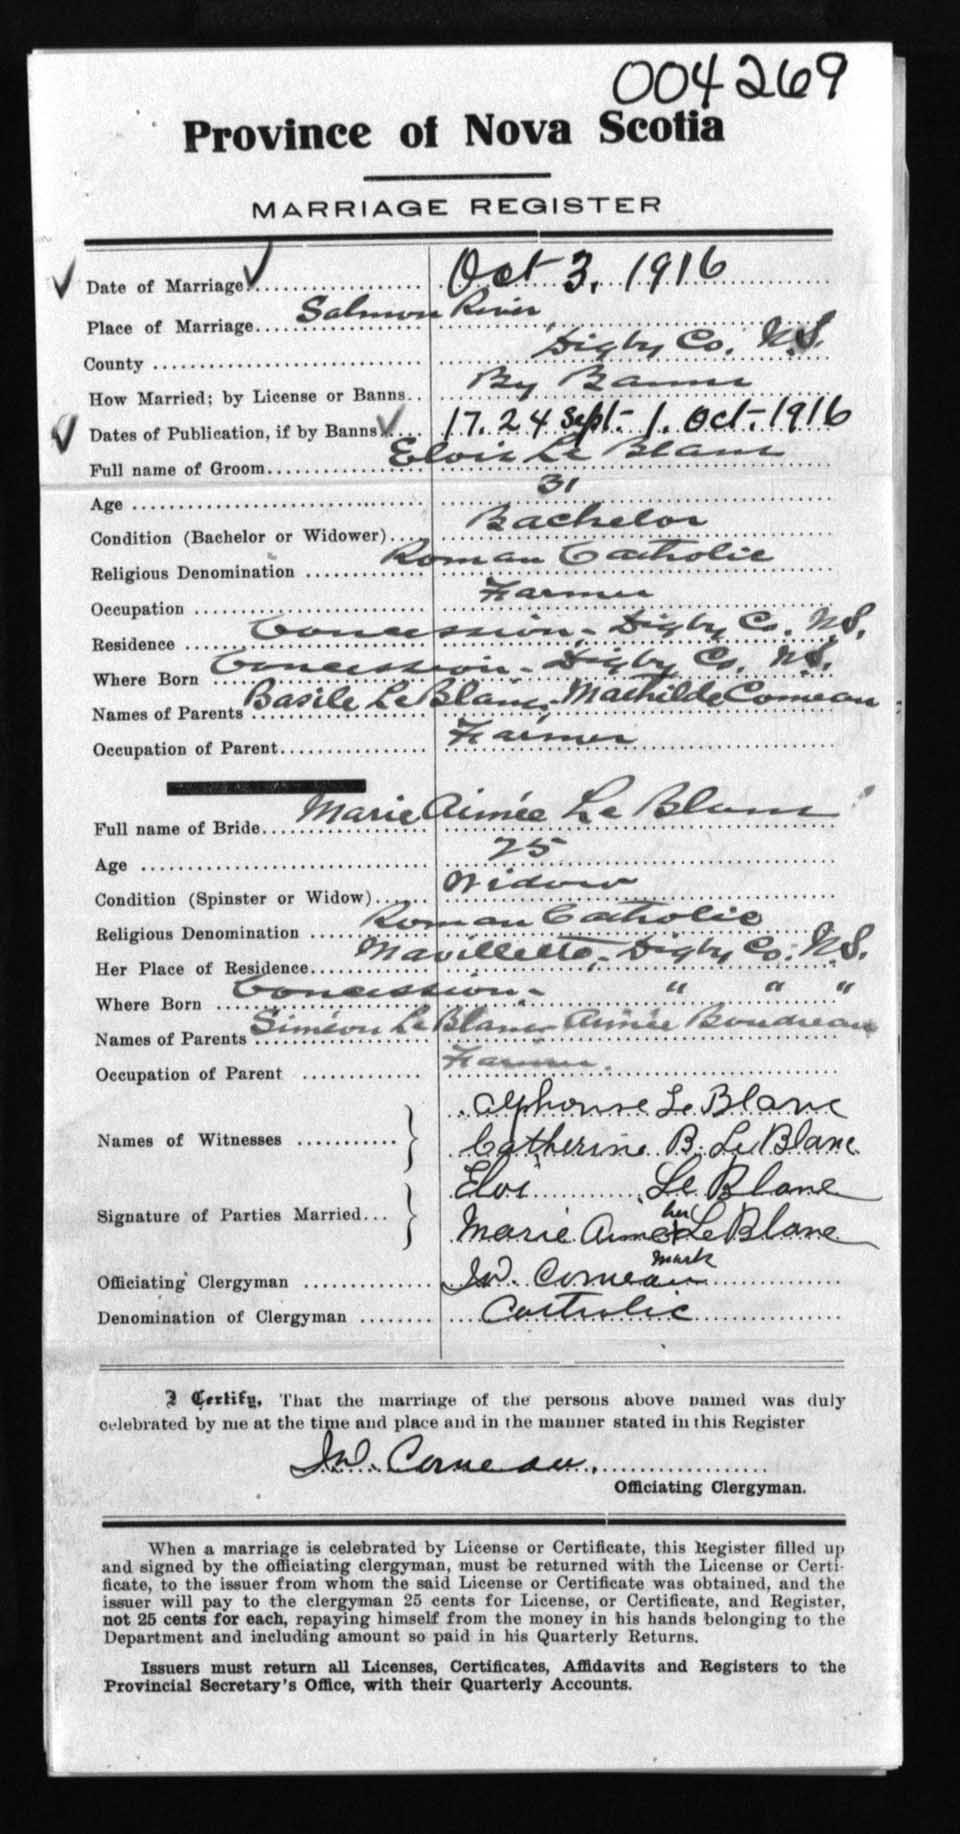 004269
Province of Nova Scotia
MARRIAGE REGISTER
Date of Marriage Oct 3, 1916
Place of Marriage Salmon River
County Digby Co. N.S.
How Married; by License or Banns By Banns
Dates of Publication, if by Banns 17. 24 Sept. 1. Oct. 1916
Full name of Groom Elois Le Blanc
Age 31
Condition (Bachelor or Widower) Bachelor
Religious Denomination Roman Catholic
Occupation Farmer
Residence Concession, Digby Co. N.S.
Where Born Concession - Digby Co. N.S.
Names of Parents Basile LeBlanc, Mathilde Comeau
Occupation of Parent Farmer
Full name of Bride Marie Aimée Le Blanc
Age 25
Condition (Spinster or Widow) Widow
Religious Denomination Roman Catholic
Her Place of Residence Mavillette, Digby Co. N.S.
Where Born Concession - " " "
Names of Parents Siméon LeBlanc Aimée Boudreau
Occupation of Parent Farmer.
Names of Witnesses } Alphonse Le Blanc
Catherine B. LeBlanc
Signature of Parties Married } Eloi Le Blanc
Marie Aimée her X mark LeBlanc
Officiating Clergyman Comeau
Denomination of Clergyman Catholic
I Certify, That the marriage of the persons above named was duly
celebrated by me at the time and place and in the manner stated in this Register
Comeau.
Officiating Clergyman.
When a marriage is celebrated by License or Certificate, this Register filled up
and signed by the officiating clergyman, must be returned with the License or Certi-
ficate, to the issuer from whom the said License or Certificate was obtained, and the
issuer will pay to the clergyman 25 cents for License, or Certificate, and Register,
not 25 cents for each, repaying himself from the money in his hands belonging to the
Department and including amount so paid in his Quarterly Returns.
Issuers must return all Licenses, Certificates, Affidavits and Registers to the
Provincial Secretary's Office, with their Quarterly Accounts.